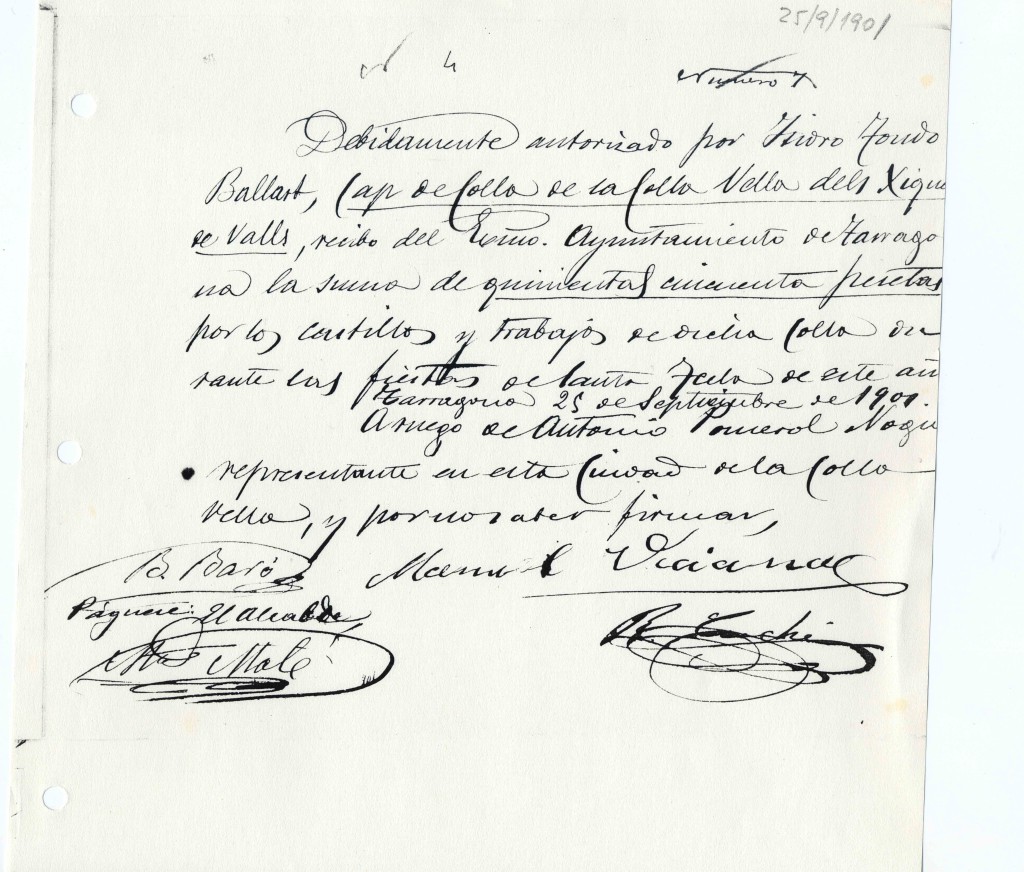 25/9/1901
N 4
Numero 7
Debidamente autorizado por Isidro Tondo
Ballart, Cap de Colla de la Colla Vella dels Xique
de Valls, recibo del Exmo. Ayuntamiento de Tarrago
na la suma de quinientas cincuenta pesetas
por los castillos y trabajos de dicha Colla du
rante las fiestas de Santa Tecla de este añ
Tarragona 25 de Septiembre de 1901.
A ruego de Antonio Pomerol Nogu
representante en esta Ciudad de la Colla
Vella, y por no saber firmar,
B. Baró
Manuel Vicianae
Páguese: El Alcalde,
Malé
R.